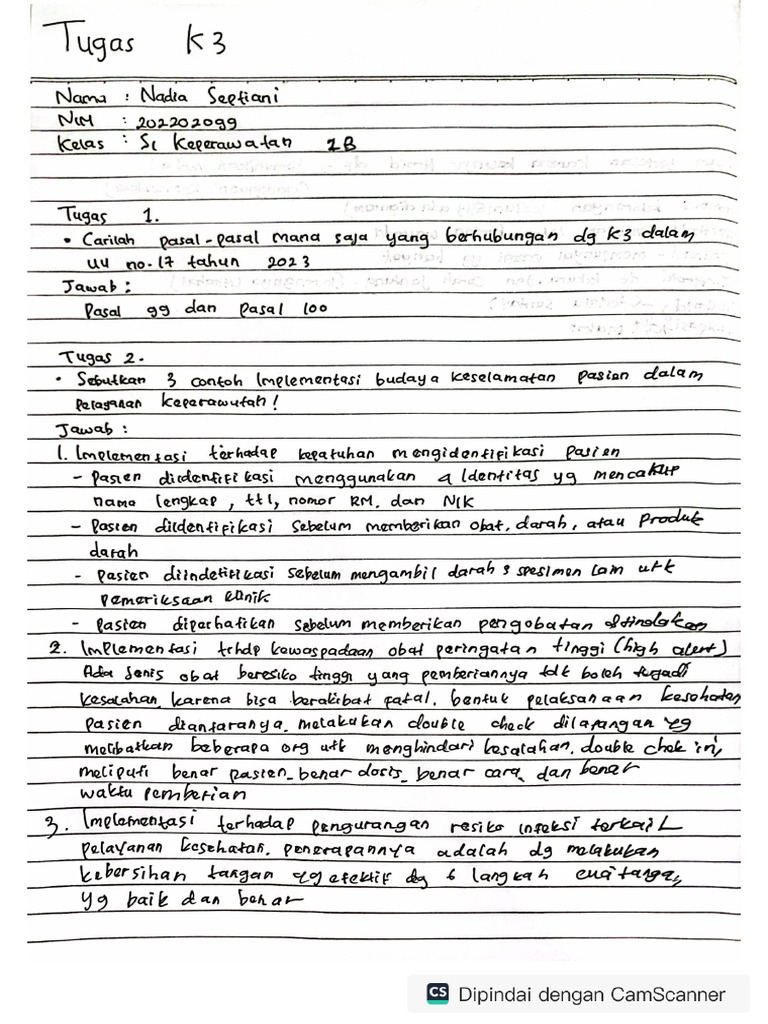 Tugas K3
Nama : Nadia Septiani
NIM : 202202099
Kelas : S1 Keperawatan 2B
Tugas 1.
• Carilah pasal-pasal mana saja yang berhubungan dg K3 dalam
UU no.17 tahun 2023
Jawab :
Pasal 99 dan Pasal 100
Tugas 2.
• Sebutkan 3 contoh Implementasi budaya keselamatan pasien dalam
pelayanan keperawatan!
Jawab :
1. Implementasi terhadap kepatuhan mengidentifikasi pasien
- Pasien diidentifikasi menggunakan 4 Identitas yg mencakup
nama lengkap, ttl, nomor RM, dan NIK
- Pasien diidentifikasi sebelum memberikan obat, darah, atau Produk
darah
- Pasien diindetifikasi sebelum mengambil darah & spesimen lain utk
pemeriksaan klinik
- Pasien diperhatikan sebelum memberikan pengobatan & tindakan
2. Implementasi trhdp kewaspadaan obat peringatan tinggi (high alert)
Ada jenis obat beresiko tinggi yang pemberiannya tdk boleh terjadi
kesalahan karena bisa berakibat fatal. bentuk pelaksanaan kesehatan
pasien diantaranya. melakukan double check dilapangan yg
melibatkan beberapa org utk menghindari kesalahan. double chek ini,
meliputi benar pasien, benar dosis, benar cara, dan benar
waktu pemberian
3. Implementasi terhadap pengurangan resiko infeksi terkait
pelayanan kesehatan. penerapannya adalah dg melakukan
kebersihan tangan yg efektif dg 6 langkah cuci tangan
yg baik dan benar
CS Dipindai dengan CamScanner